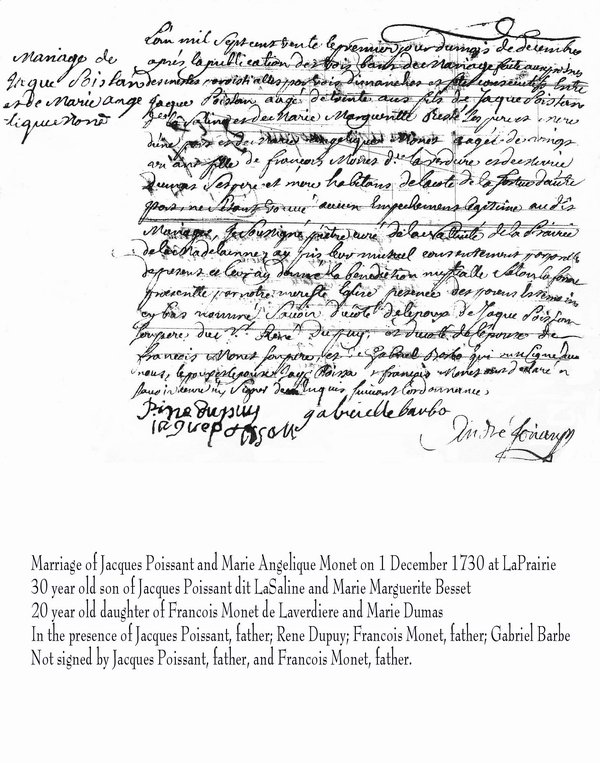 Mariage de
Jaque Poissan
et de Marie ange
lique Monet
L'an mil Sept cent trente le premier jour du mois de decembre
après la publication des trois bans de Mariage
trois dimanches et
Jaque Poissan aagé de trente ans fils de Jaque Poissan
et de Marie Margueritte les pere et mere
d'une part et de Marie Angelique Monet aagée de vingt
ans fille de francois Monet La verdure et de Marie
Dumas Ses pere et mere habitans de la coté de la d'autre
part ne s'étant trouvé aucun Empechement legitime au dit
Mariage, Je Soussigné prêtre curé de la de la Prairie
de la Madelainne ay pris leur mutuel consentement par parolle
de present et leur ay donné la benediction nuptialle Selon la forme
prescritte par notre mere Ste Eglise presence des
en bas nommé Savoir du coté de l'epoux de Jaque Poissan
Son pere du Sr René Dupuy, et du coté de l'epouse de
francois Monet Son pere, et de Gabriel Barbo qui ont Signé avec
nous, le pere de l'epoux Jaque Poissan et francois Monet ont declaré ne
Savoir Signer de ce Enquis Suivant L'ordonnance.
rine dupuy gabrielle barbo
iaque poissan
André
Marriage of Jacques Poissant and Marie Angelique Monet on 1 December 1730 at LaPrairie
30 year old son of Jacques Poissant dit LaSaline and Marie Marguerite Besset
20 year old daughter of Francois Monet de Laverdiere and Marie Dumas
In the presence of Jacques Poissant, father; Rene Dupuy; Francois Monet, father; Gabriel Barbe
Not signed by Jacques Poissant, father, and Francois Monet, father.